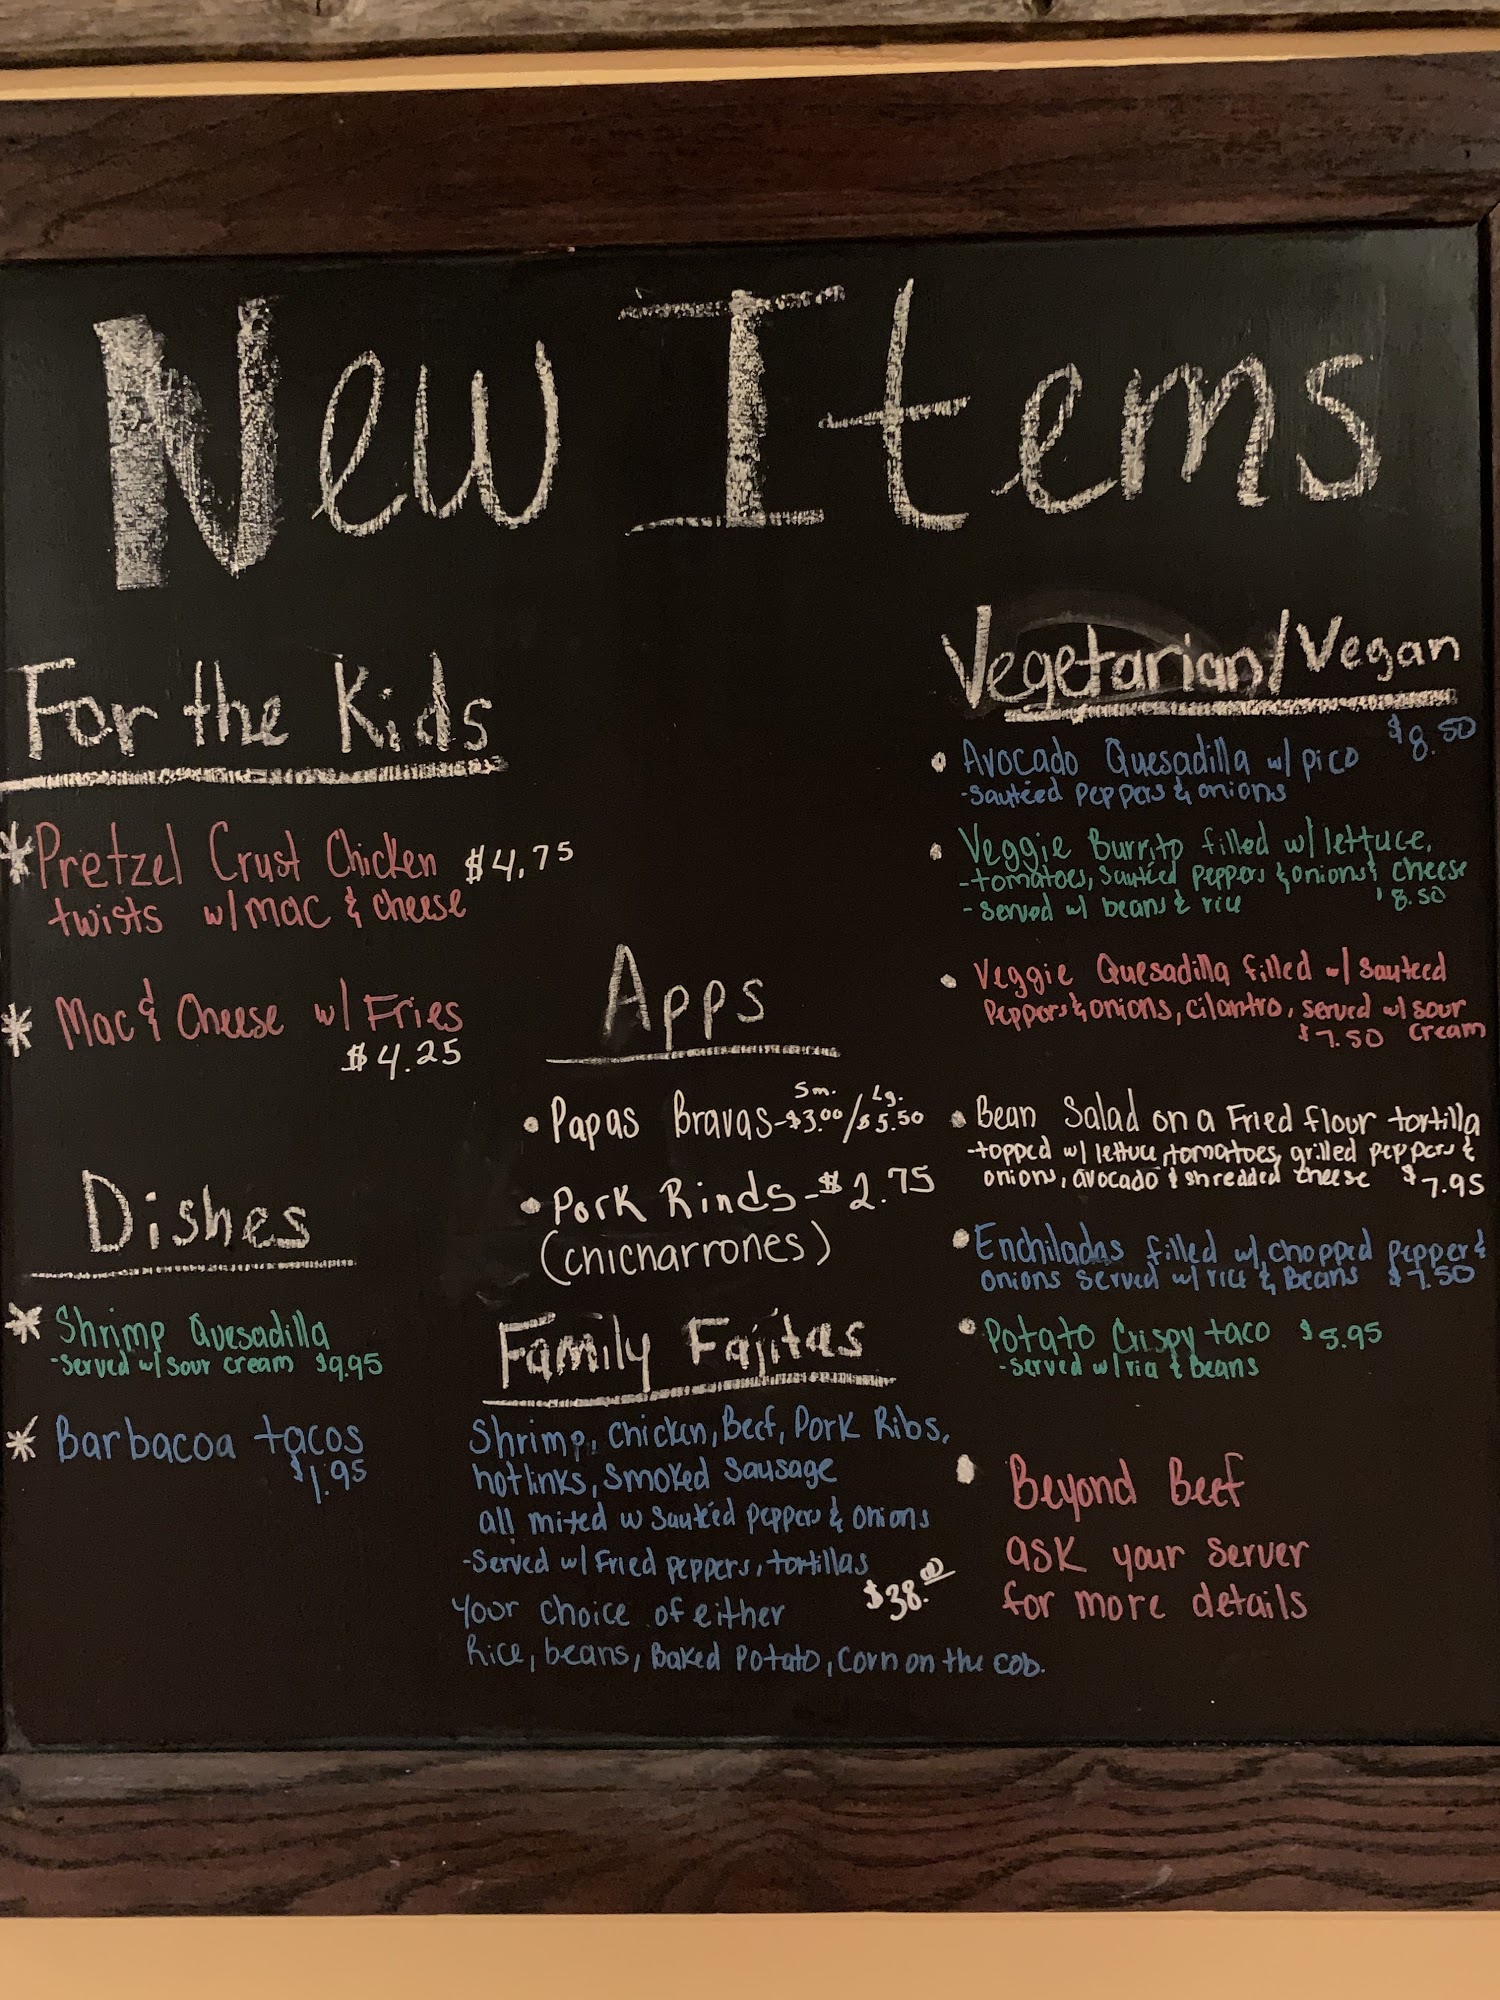 New Items
For the Kids
*Pretzel Crust Chicken $4.75
twists w/mac & cheese
* Mac & Cheese w/ Fries
$4.25
Dishes
* Shrimp Quesadilla
-served w/ sour cream $9.95
* Barbacoa tacos
$1.95
Apps
Sm. Lg.
• Papas Bravas-$3.00/$5.50
• Pork Rinds-$2.75
(chicharrones)
Family Fajitas
Shrimp, Chicken, Beef, Pork Ribs,
hotlinks, Smoked Sausage
all mixed w Sautéed peppers & onions
-Served w/ Fried peppers, tortillas
$38.00
your choice of either
Rice, beans, Baked Potato, Corn on the cob.
Vegetarian/Vegan
• Avocado Quesadilla w/ pico $8.50
-Sautéed peppers & onions
• Veggie Burrito filled w/ lettuce,
-tomatoes, sautéed peppers & onions & cheese
- served w/ beans & rice $8.50
• Veggie Quesadilla filled w/ sauteed
peppers & onions, cilantro, served w/ sour
$7.50 cream
• Bean Salad on a Fried flour tortilla
-topped w/ lettuce, tomatoes, grilled peppers &
onions, avocado & shredded cheese $7.95
• Enchiladas filled w/ chopped pepper &
onions served w/ rice & Beans $7.50
• Potato Crispy taco $5.95
-served w/ ria & beans
• Beyond Beef
ask your server
for more details